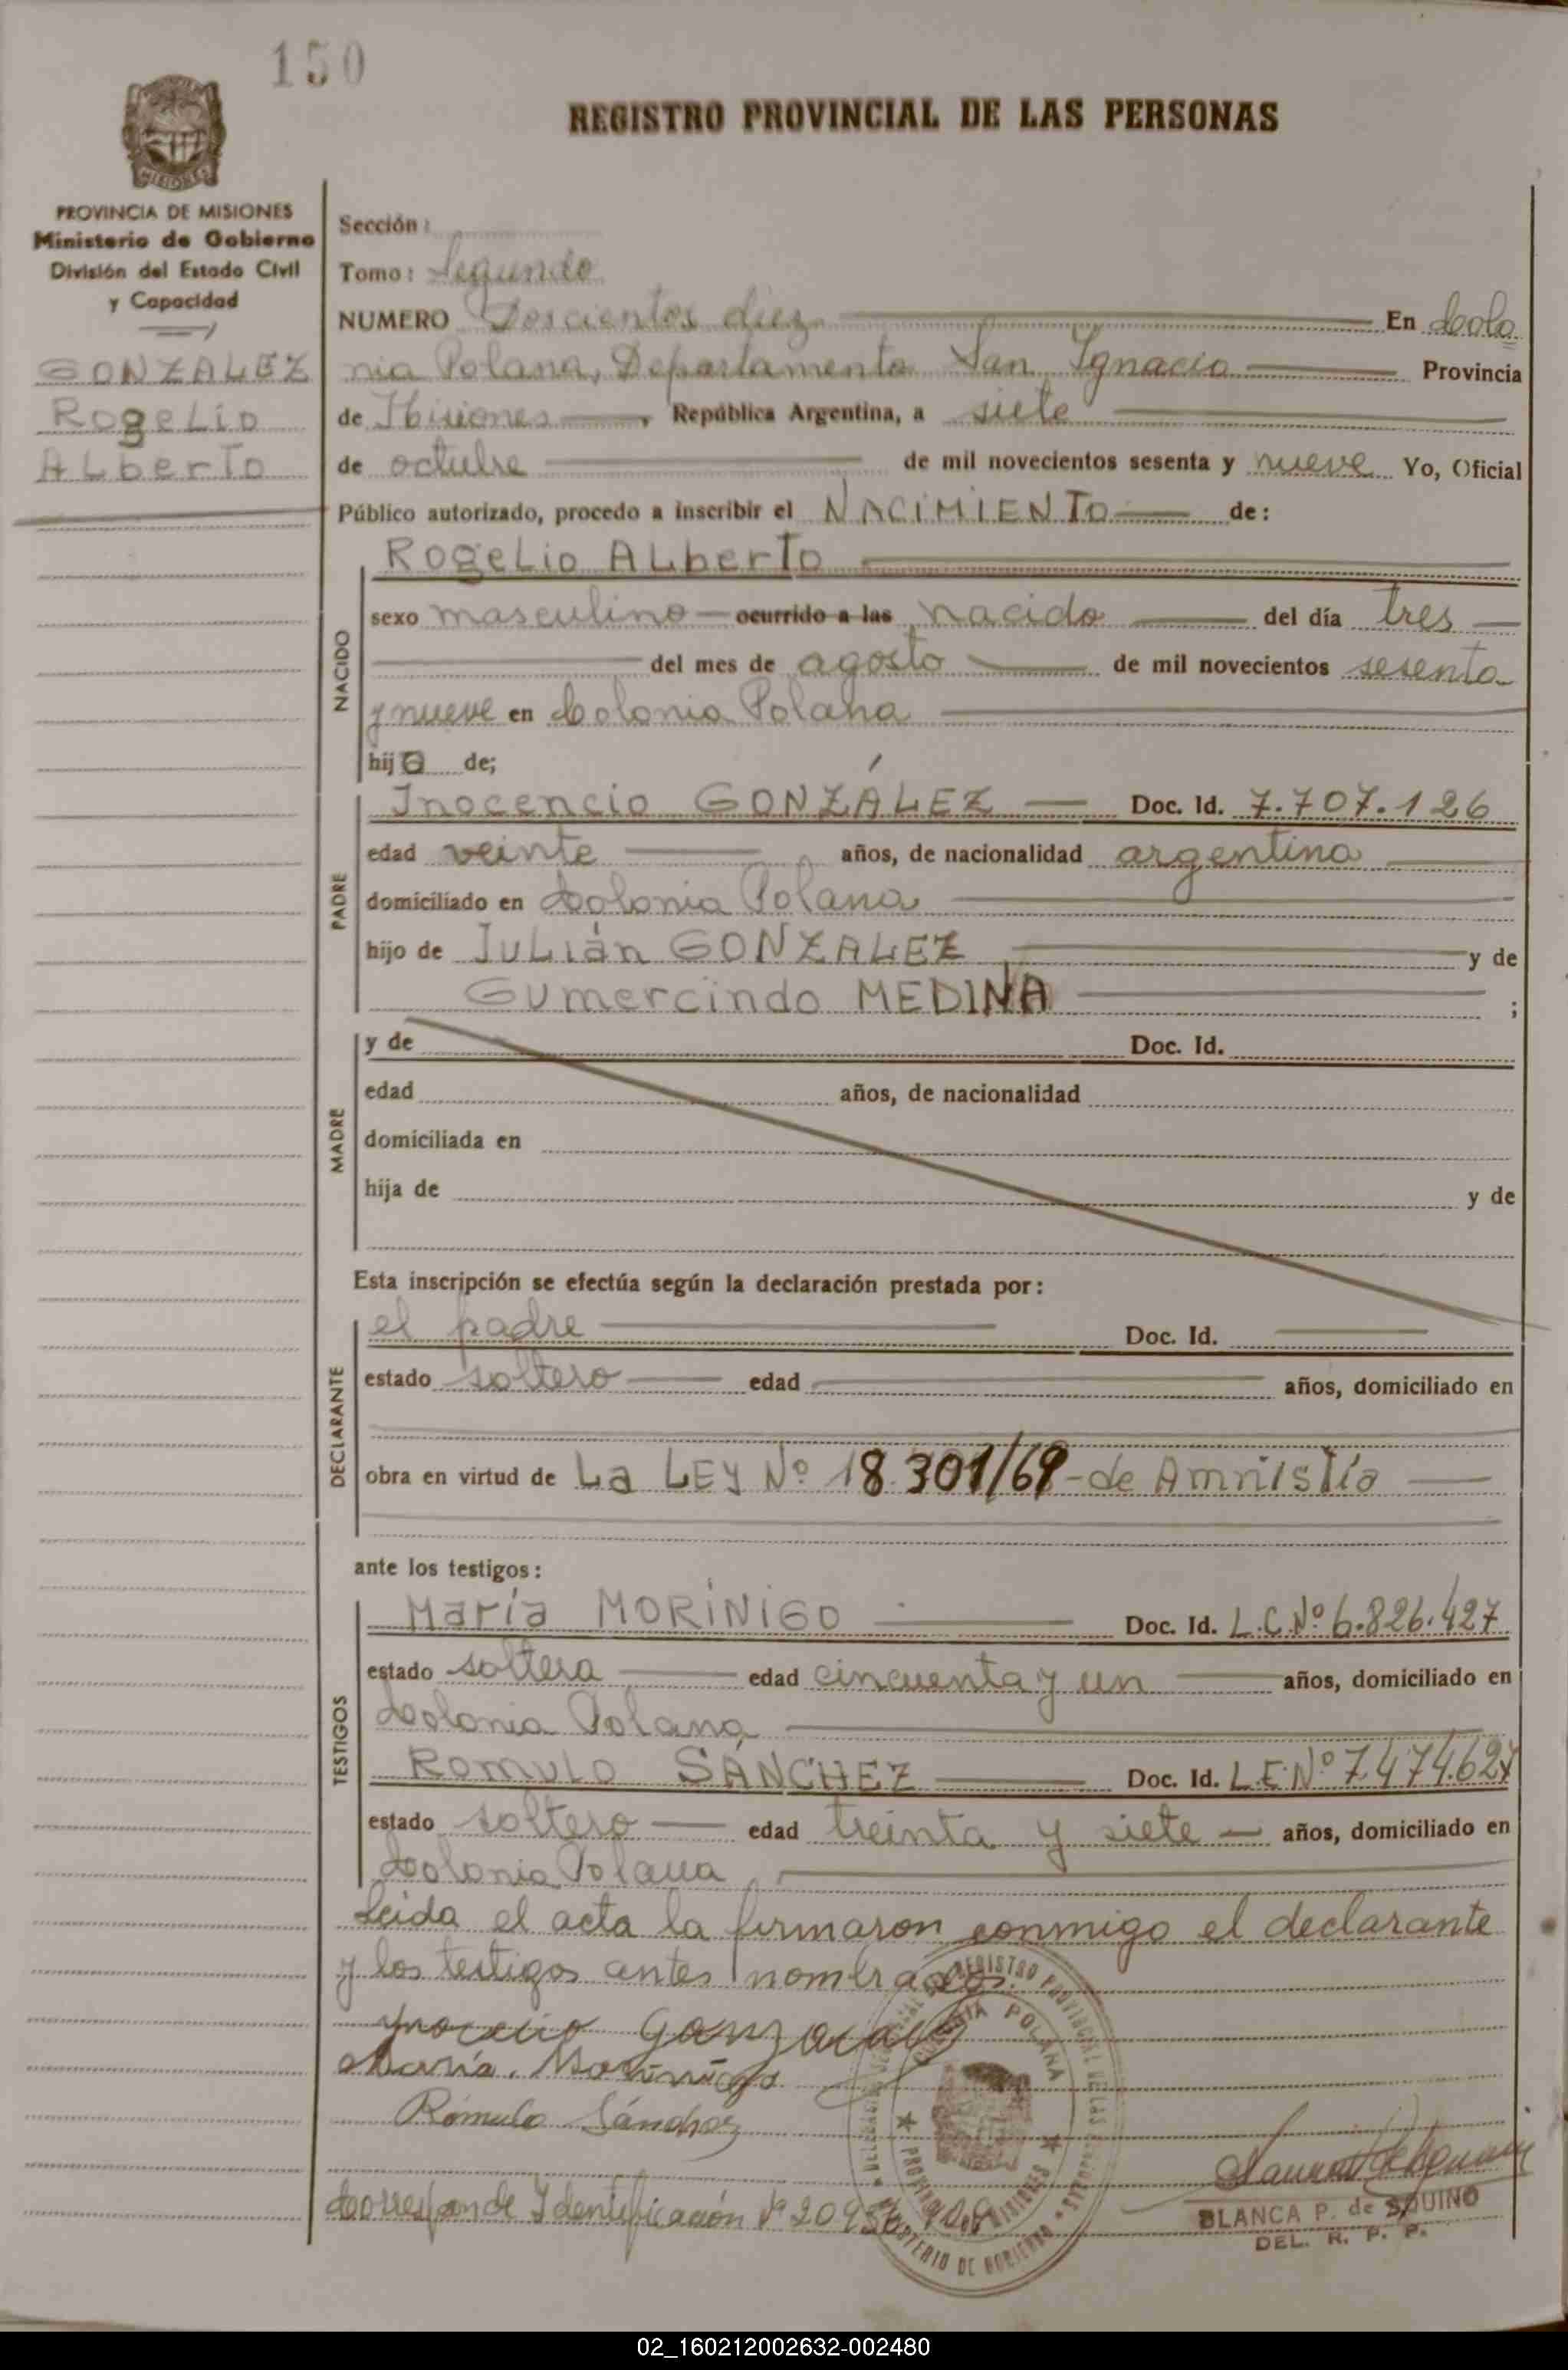 150
REGISTRO PROVINCIAL DE LAS PERSONAS
MISIONES
PROVINCIA DE MISIONES
Ministerio de Gobierno
División del Estado Civil
y Capacidad
GONZALEZ
Rogelio
Alberto
Sección:
Tomo: Segundo
NUMERO Doscientos diez En Colo
nia Polana, Departamento San Ignacio Provincia
de Misiones, República Argentina, a siete
de octubre de mil novecientos sesenta y nueve Yo, Oficial
Público autorizado, procedo a inscribir el NACIMIENTO de:
Rogelio Alberto
NACIDO
sexo masculino ocurrido a las nacido del día tres
del mes de agosto de mil novecientos sesenta
y nueve en Colonia Polana
hijo de;
PADRE
Inocencio GONZÁLEZ Doc. Id. 7.707.126
edad veinte años, de nacionalidad argentina
domiciliado en Colonia Polana
hijo de Julián GONZALEZ y de
Gumercindo MEDINA ;
MADRE
y de Doc. Id.
edad años, de nacionalidad
domiciliada en
hija de y de
Esta inscripción se efectúa según la declaración prestada por:
DECLARANTE
el padre Doc. Id.
estado soltero edad años, domiciliado en
obra en virtud de La LEY Nº 18.301/69 - de Amnistía
ante los testigos:
TESTIGOS
María MORÍNIGO Doc. Id. L.C.Nº 6.826.427
estado soltera edad cincuenta y un años, domiciliado en
Colonia Polana
Romulo SÁNCHEZ Doc. Id. L.E.Nº 7.474.627
estado soltero edad treinta y siete años, domiciliado en
Colonia Polana
Leida el acta la firmaron conmigo el declarante
y los testigos antes nombrados.
Inocencio Gonzalez
María Morínigo
Rómulo Sánchez
REGISTRO PROVINCIAL DE LAS PERSONAS
COLONIA POLANA
PROVINCIA DE MISIONES
MINISTERIO DE GOBIERNO
BLANCA P. de AQUINO
DEL. R. P. P.
Corresponde Identificación Nº 20.956.908
02_160212002632-002480